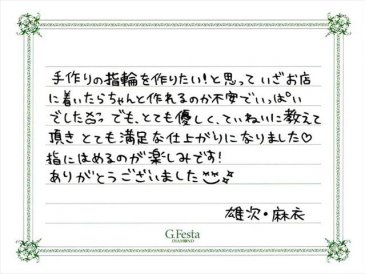 手作りの指輪を作りたい！と思っていざお店
に着いたらちゃんと作れるのか不安でいっぱい
でした でも、とても優しく、ていねいに教えて
頂きとても満足な仕上がりになりました♡
指にはめるのが楽しみです！
ありがとうございました
雄次・麻衣
G.Festa
DIAMOND